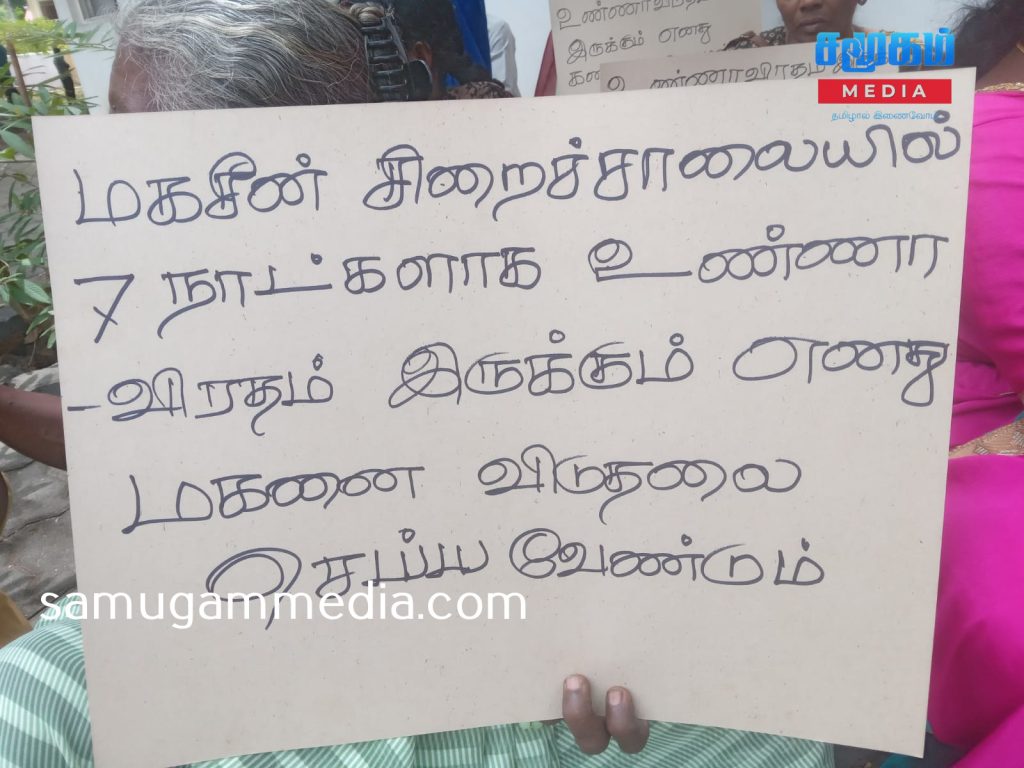 உண்ணாவிரதம்
இருக்கும் எனது
உண்ணாவிரதம்
சமூகம்
MEDIA
தமிழால் இணைவோம்
மகசீன் சிறைச்சாலையில்
7 நாட்களாக உண்ணா
-விரதம் இருக்கும் எனது
மகனை விடுதலை
செய்ய வேண்டும்
samugammedia.com